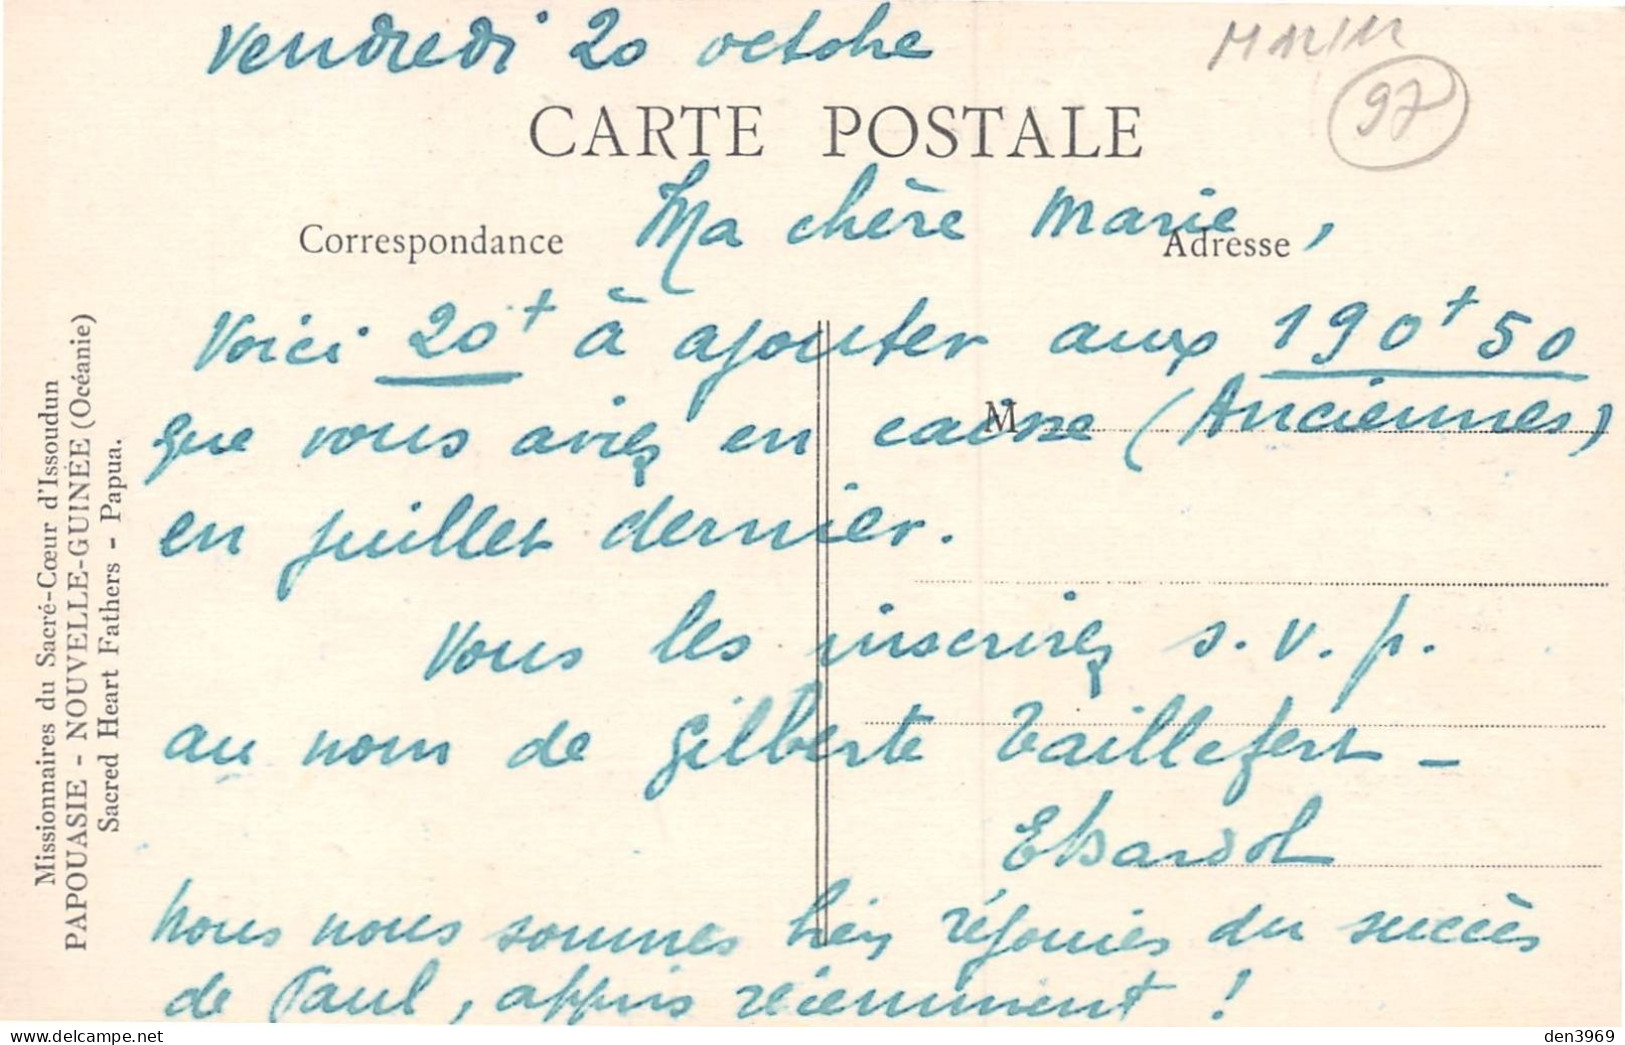 Vendredi 20 octobre
97
CARTE POSTALE
Correspondance
Adresse
Ma chère Marie,
Voici 20+ à ajouter aux 190+50
M
que vous aviez en caisse (Anciennes)
en juillet dernier.
Vous les inscrirez s.v.p.
au nom de Gilberte Taillefert -
Nous nous sommes bien réjouies du succès
de Paul, appris récemment !
Missionnaires du Sacré-Cœur d'Issoudun
PAPOUASIE - NOUVELLE-GUINÉE (Océanie)
Sacred Heart Fathers - Papua.
den3969